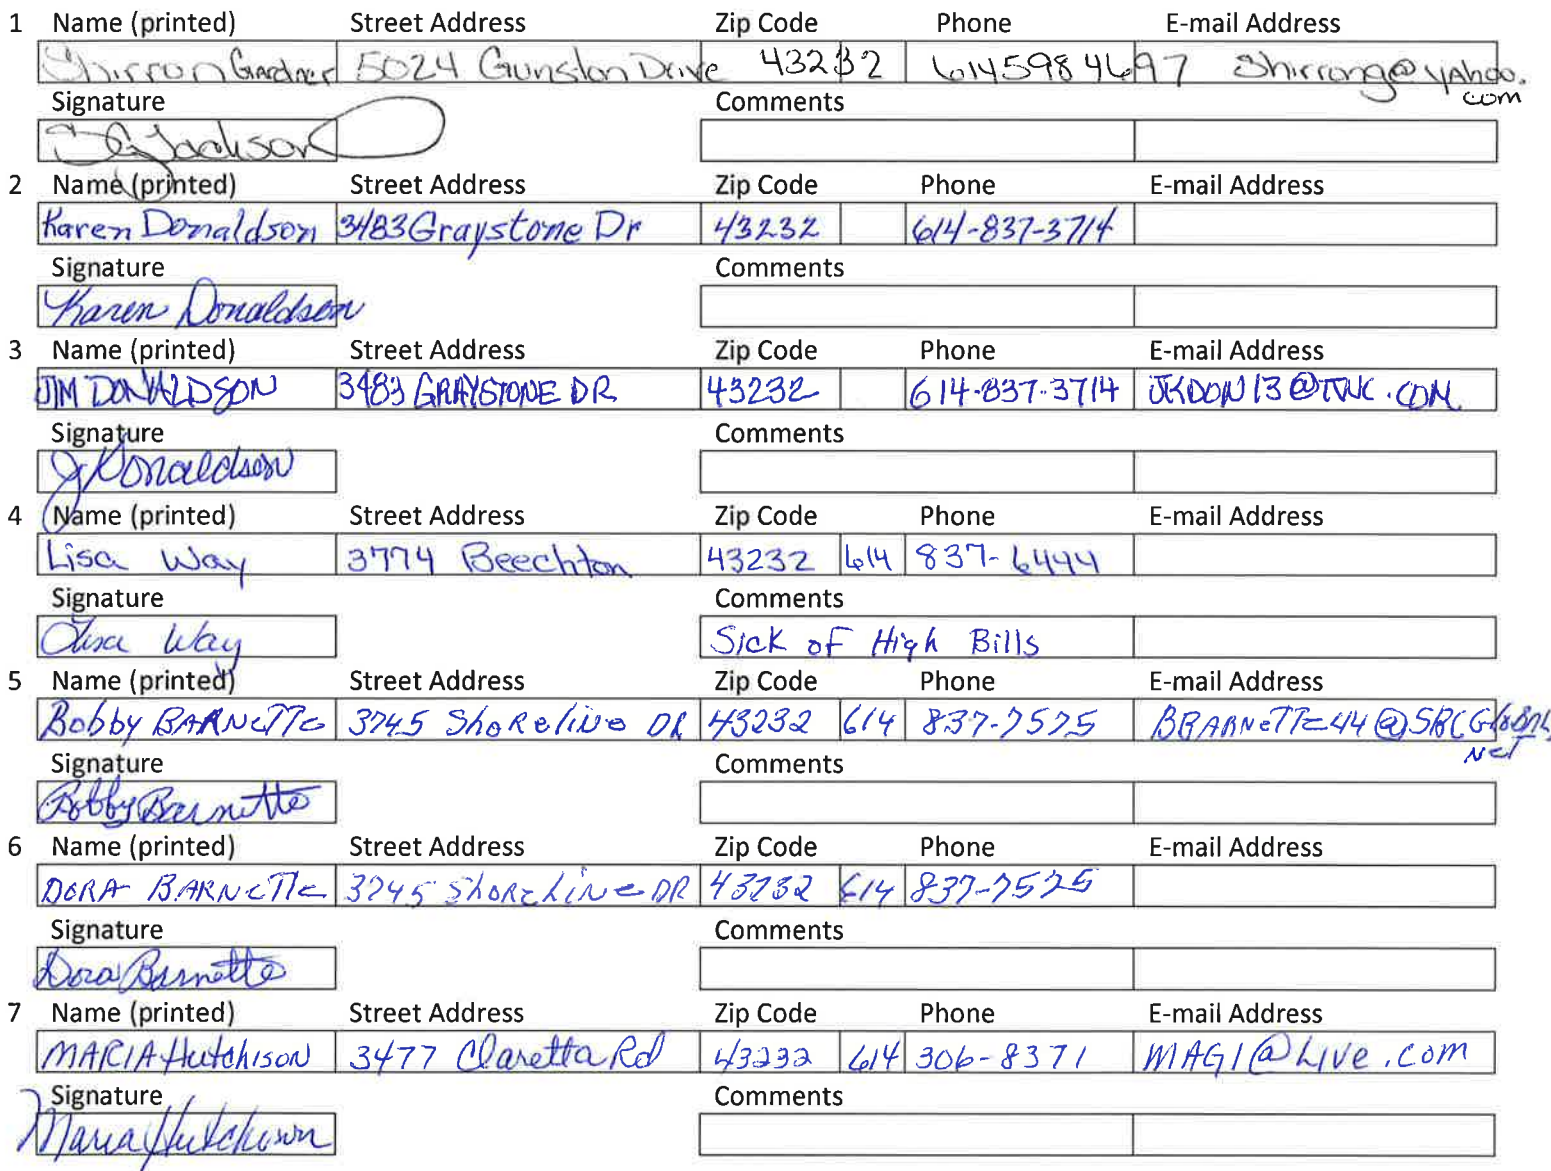 1 Name (printed) Street Address Zip Code Phone E-mail Address
Shirron Gardner 5024 Gunston Drive 43232 6145984697 Shirrong@yahoo.
com
Signature Comments
SGJackson
2 Name (printed) Street Address Zip Code Phone E-mail Address
Karen Donaldson 3483 Graystone Dr 43232 614-837-3714
Signature Comments
Karen Donaldson
3 Name (printed) Street Address Zip Code Phone E-mail Address
JIM DONALDSON 3483 GRAYSTONE DR 43232 614-837-3714 JKDON13@TWC.COM
Signature Comments
J Donaldson
4 Name (printed) Street Address Zip Code Phone E-mail Address
Lisa Way 3774 Beechton 43232 614 837-6444
Signature Comments
Lisa Way Sick of High Bills
5 Name (printed) Street Address Zip Code Phone E-mail Address
Bobby BARNETTE 3745 Shoreline DR 43232 614 837-7575 BBARNETTE44@SBCGlobal
Net
Signature Comments
Bobby Barnette
6 Name (printed) Street Address Zip Code Phone E-mail Address
DORA BARNETTE 3745 ShoreLine DR 43232 614 837-7575
Signature Comments
Dora Barnette
7 Name (printed) Street Address Zip Code Phone E-mail Address
MARIA Hutchison 3477 Claretta Rd 43232 614 306-8371 MAG1@Live.com
Signature Comments
Maria Hutchison